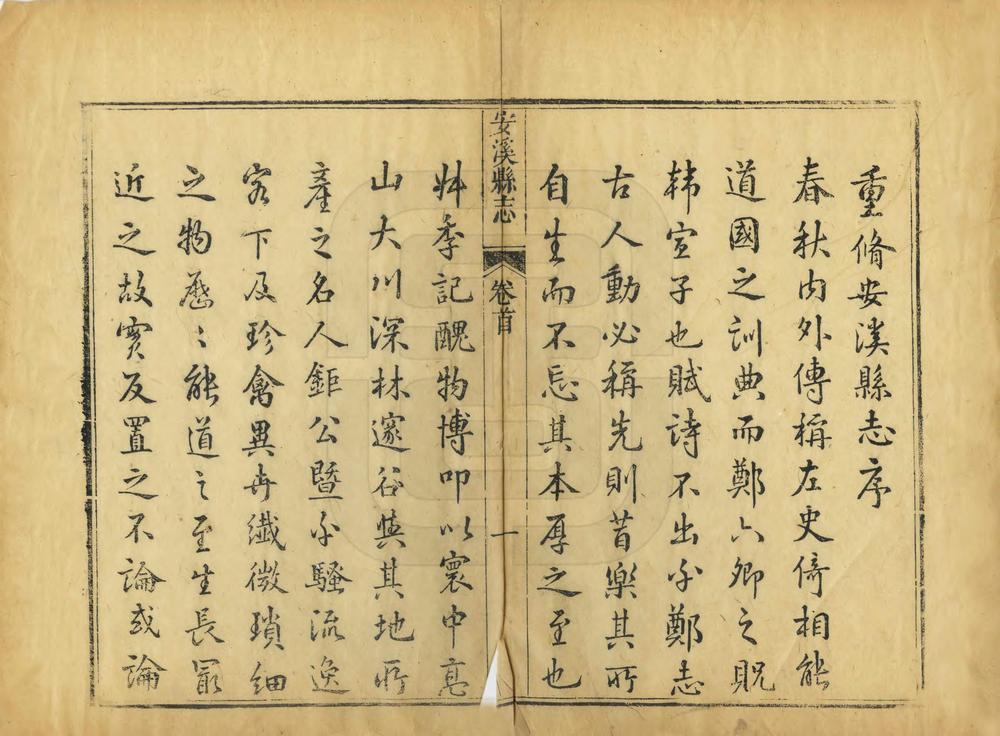 重脩安溪縣志序
春秋内外傳稱左史倚相能
道國之訓典而鄭六卿之貺
韩宣子也賦詩不出鄭志
古人動必稱先則昔樂其所
自生而不忘其本厚之至也
安溪縣志
卷首
一
季記醜物博叩以寰中髙
山大川深林邃谷與其地所
產之名人鉅公暨騷流逸
客下及珍禽異卉纖微瑣細
之物歷〻能道之至生長最
近之故實反置之不論或論